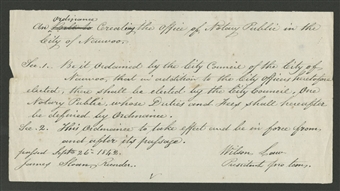 Ordinance
An Creating the Office of Notary Public in the
City of Nauvoo.
Sec. 1. Be it Ordained by the City Council of the City of
Nauvoo, that in addition to the City officers heretofore
elected, there shall be elected by the City Council, One
Notary Public, whose Duties and Fees shall hereafter
be defined by Ordinance.
Sec. 2. This Ordinance to take effect and be in force from
and after its passage.
passed Sept. 26th 1842. Wilson Law.
James Sloan, Recorder. President pro tem.